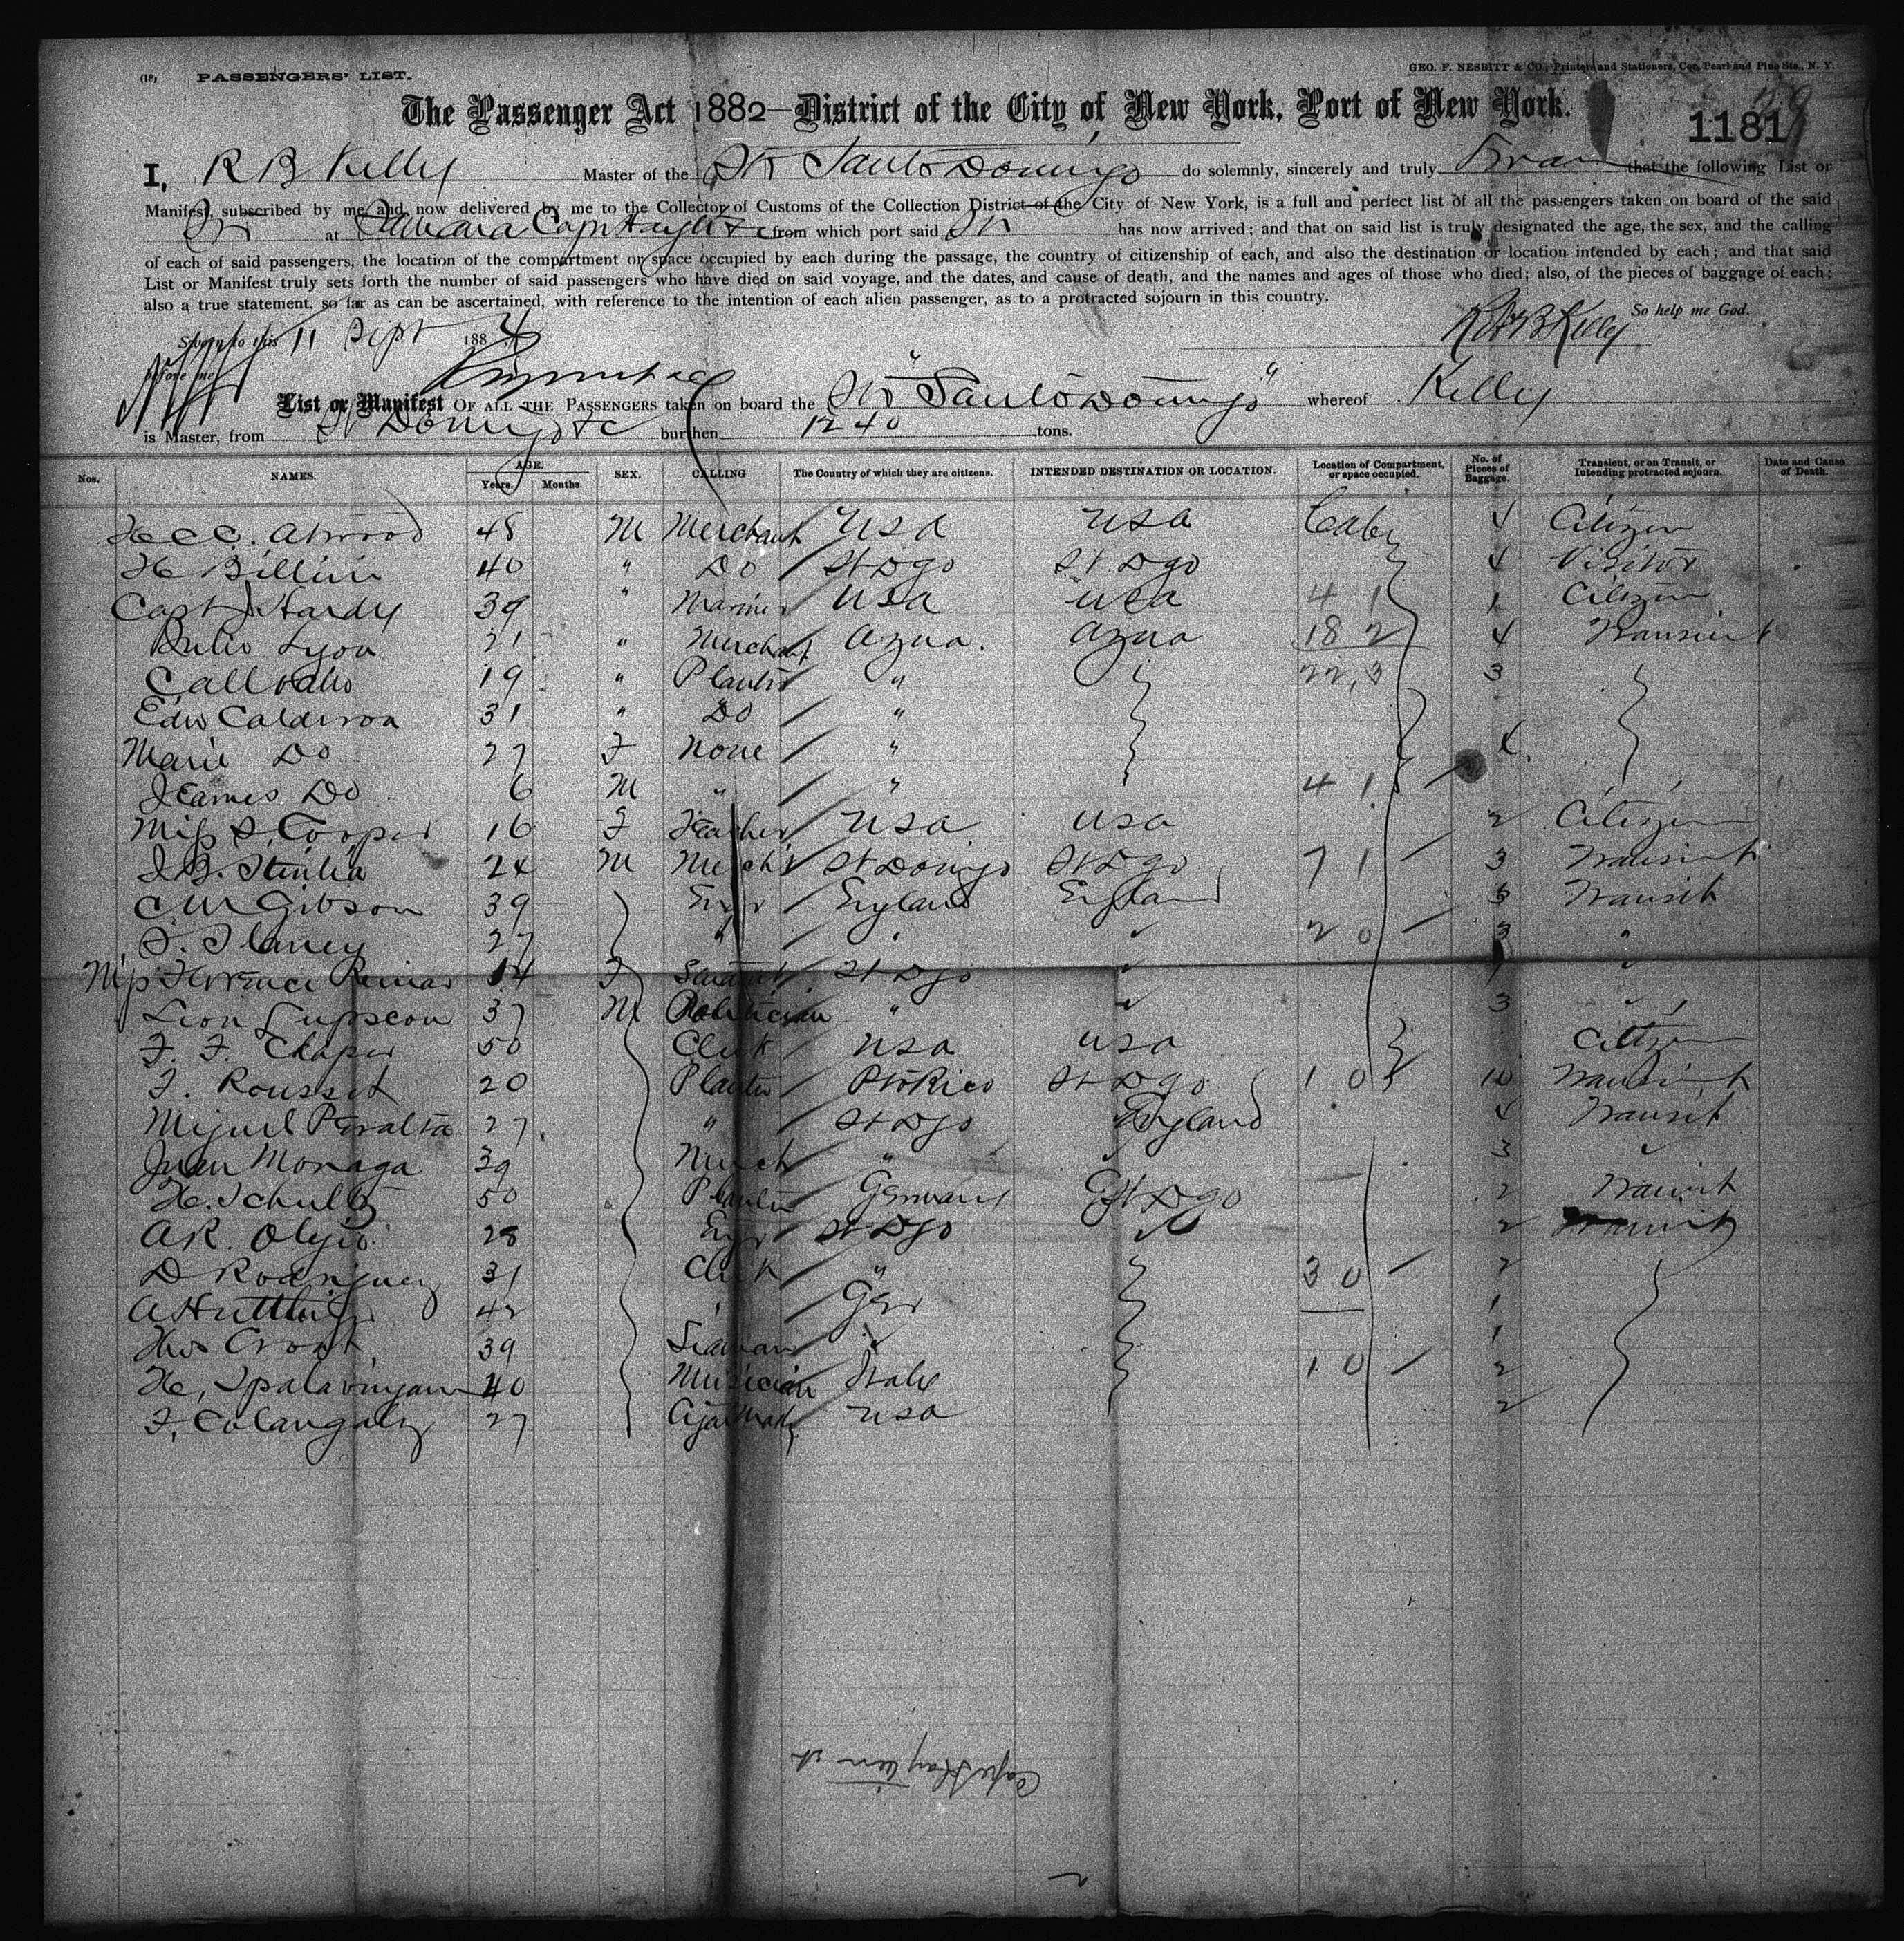 (18) PASSENGERS' LIST. GEO. F. NESBITT & CO., Printers and Stationers, Cor. Pearl and Pine Sts., N. Y.
The Passenger Act 1882—District of the City of New York, Port of New York.
1181
I, R B Kelly Master of the Str Santo Domingo do solemnly, sincerely and truly Swear that the following List or
Manifest, subscribed by me and now delivered by me to the Collector of Customs of the Collection District of the City of New York, is a full and perfect list of all the passengers taken on board of the said
Str at from which port said Str has now arrived; and that on said list is truly designated the age, the sex, and the calling
of each of said passengers, the location of the compartment or space occupied by each during the passage, the country of citizenship of each, and also the destination or location intended by each; and that said
List or Manifest truly sets forth the number of said passengers who have died on said voyage, and the dates, and cause of death, and the names and ages of those who died; also, of the pieces of baggage of each;
also a true statement, so far as can be ascertained, with reference to the intention of each alien passenger, as to a protracted sojourn in this country. So help me God.
Sworn to this 11 Sept 1884 RB Kelly
before me
List or Manifest OF ALL THE PASSENGERS taken on board the Str "Santo Domingo" whereof Kelly
is Master, from St Domingo &c burthen 1240 tons.
Nos. NAMES. AGE. Years. Months. SEX. CALLING The Country of which they are citizens. INTENDED DESTINATION OR LOCATION. Location of Compartment, or space occupied. No. of Pieces of Baggage. Transient, or on Transit, or Intending protracted sojourn. Date and Cause of Death.
Atwood 48 M Merchant USA USA Cabin 4 Citizen
H Billini 40 " Do St Dgo St Dgo 4 Visitor
Capt J Hardy 39 " Mariner USA USA 4 1 1 Citizen
Julio Lyon 21 " Merchant Azua. Azua 18 2 4 Transient
19 " Planter " 22, 3 3
Edw Calderon 31 " Do "
Marie Do 27 F None " 4
James Do 6 M " " 4 1
Miss S. Cooper 16 F Teacher USA USA 2 Citizen
24 M Mercht St Domingo St Dgo 7 1 3 Transient
C W Gibson 39 Engr England England 3 Transit
27 " " ✓ 2 0 3 "
Miss Florence 14 F Servant St Dgo ✓ 1 ✓
Leon 37 M Politician " ✓ 3 ✓
50 Clerk USA USA Citizen
F. Rousset 20 Planter Pto Rico St Dgo 1 0 10 Transient
Miguel Peralta 27 " St Dgo England 4 Transit
Juan Monaga 39 Merch " ✓ 3 ✓
H. Schultz 50 Planter Germany St Dgo 2 Transit
A R. 28 Engr St Dgo ✓ 2 Transit
D Rodriguez 31 Clerk " 3 0 2
42 Ger 1
39 Seaman ✓ 1
H. 40 Musician Italy 1 0 2
27 USA 2
Cape Haytien